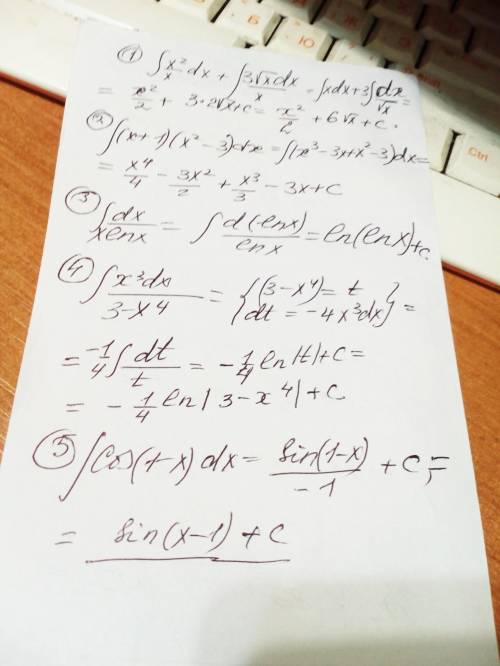 ① ∫ x²/x dx + ∫ 3√x dx/x = ∫xdx + 3∫ dx/√x =
= x²/2 + 3·2√x + c = x²/2 + 6√x + c.
② ∫(x+1)(x²-3)dx = ∫(x³-3x+x²-3)dx =
= x⁴/4 - 3x²/2 + x³/3 - 3x + C
③ ∫ dx/xlnx = ∫ d(lnx)/lnx = ln(lnx)+c.
④ ∫ x³dx/3-x⁴ = {(3-x⁴)=t
dt = -4x³dx} =
= -1/4 ∫ dt/t = -1/4 ln|t|+c =
= -1/4 ln|3-x⁴|+c
⑤ ∫Cos(1-x)dx = sin(1-x)/-1 + c =
= sin(x-1)+c